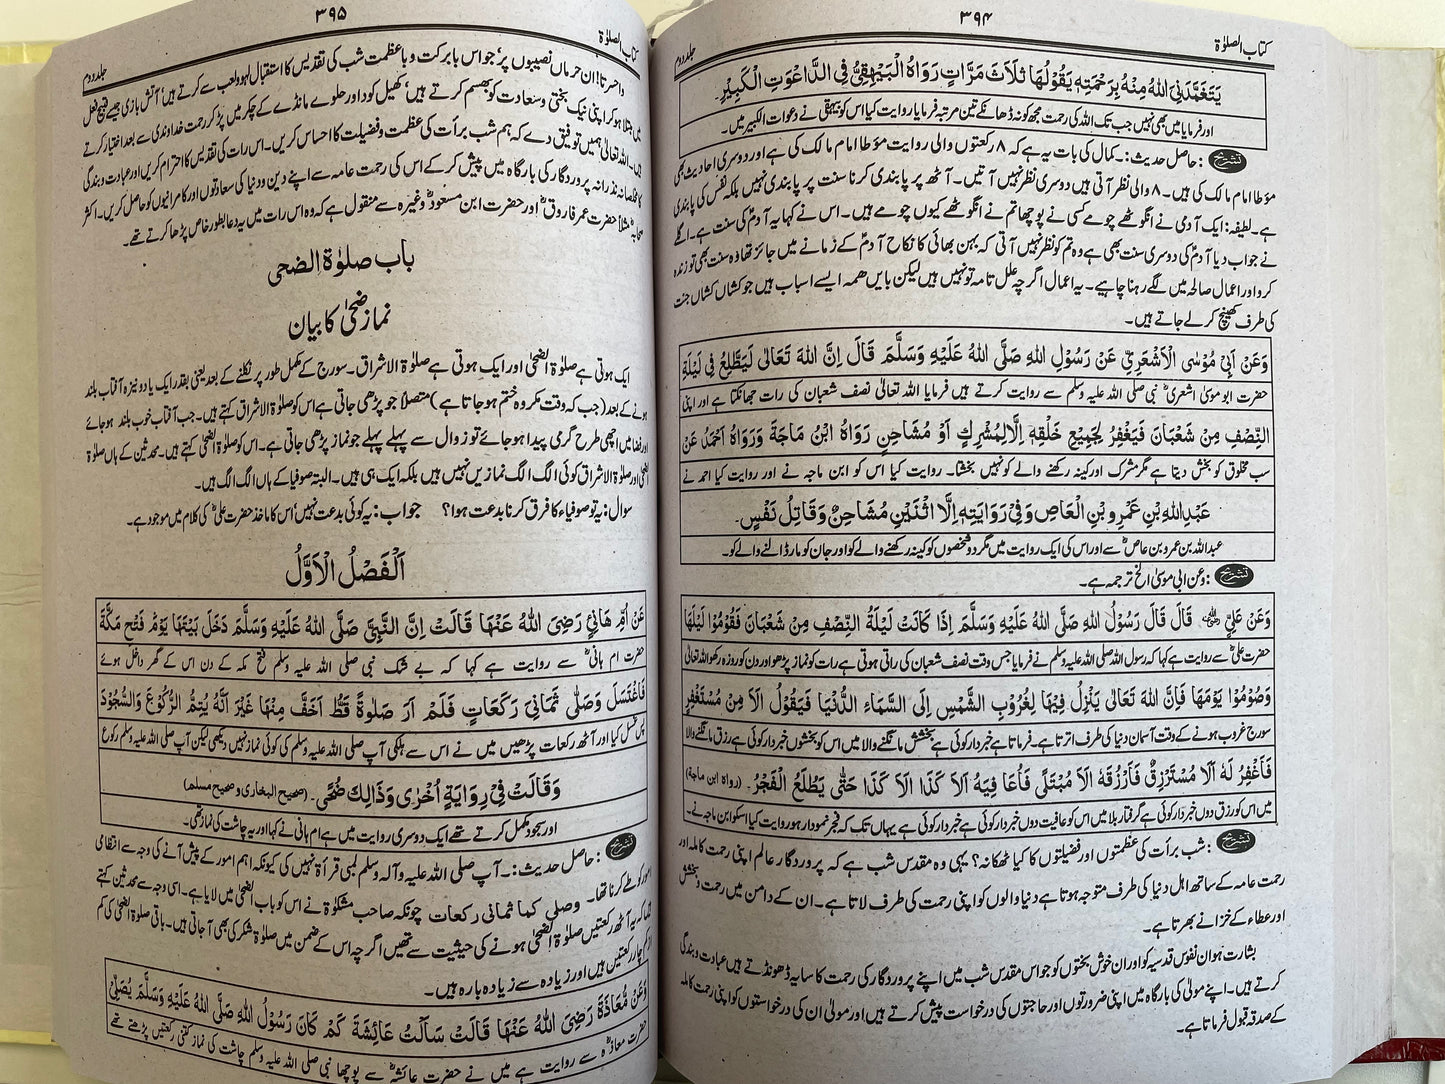 ۳۹۴
کتاب الصلوٰۃ
جلد دوم
يَتَغَمَّدَنِيَ اللهُ مِنْهُ بِرَحْمَتِهٖ يَقُوْلُهَا ثَلَاثَ مَرَّاتٍ رَوَاهُ الْبَيْهَقِيُّ فِي الدَّاعْوَتِ الْكَبِيْرِ۔
اور فرمایا میں بھی نہیں جب تک اللہ کی رحمت مجھ کو نہ ڈھانکے تین مرتبہ فرمایا روایت کیا اس کو بیہقی نے دعوات الکبیر میں۔
تشریح: حاصل حدیث:۔ کمال کی بات یہ ہے کہ ۸ رکعتوں والی روایت مؤطا امام مالک کی ہے اور دوسری احادیث بھی
مؤطا امام مالک کی ہیں۔ ۸ والی نظر آتی ہیں دوسری نظر نہیں آتیں۔ آٹھ پر پابندی کرنا سنت پر پابندی نہیں بلکہ نفس کی پابندی
ہے۔ لطیفہ: ایک آدمی نے انگوٹھے چومے کسی نے پوچھا تم نے انگوٹھے کیوں چومے ہیں۔ اس نے کہا یہ آدمؑ کی سنت ہے۔ اگلے
نے جواب دیا آدمؑ کی دوسری سنت بھی ہے وہ تم کو نظر نہیں آتی کہ بہن بھائی کا نکاح آدمؑ کے زمانے میں جائز تھا وہ سنت بھی تو زندہ
کرو اور اعمال صالحہ میں لگے رہنا چاہیے۔ یہ اعمال اگرچہ علل تامہ تو نہیں ہیں لیکن بایں ھمہ ایسے اسباب ہیں جو کشاں کشاں جنت
کی طرف کھینچ کر لے جاتے ہیں۔
وَعَنْ اَبِيْ مُوْسَى الْاَشْعَرِيِّ عَنْ رَسُوْلِ اللهِ صَلَّى اللهُ عَلَيْهِ وَسَلَّمَ قَالَ اِنَّ اللهَ تَعَالٰى لَيَطَّلِعُ فِيْ لَيْلَةِ
حضرت ابو موسیٰ اشعریؓ نبی صلی اللہ علیہ وسلم سے روایت کرتے ہیں فرمایا اللہ تعالیٰ نصف شعبان کی رات جھانکتا ہے اور اپنی
النِّصْفِ مِنْ شَعْبَانَ فَيَغْفِرُ لِجَمِيْعِ خَلْقِهٖ اِلَّا لِمُشْرِكٍ اَوْ مُشَاحِنٍ رَوَاهُ ابْنُ مَاجَةَ وَرَوَاهُ اَحْمَدُ عَنْ
سب مخلوق کو بخش دیتا ہے مگر مشرک اور کینہ رکھنے والے کو نہیں بخشتا۔ روایت کیا اس کو ابن ماجہ نے اور روایت کیا احمد نے
عَبْدِ اللهِ بْنِ عَمْرِو بْنِ الْعَاصِ وَفِيْ رَوَايَتِهٖ اِلَّا اثْنَيْنِ مُشَاحِنٌ وَقَاتِلُ نَفْسٍ۔
عبداللہ بن عمرو بن عاصؓ سے اور اس کی ایک روایت میں مگر دو شخصوں کو کینہ رکھنے والے کو اور جان کو مار ڈالنے والے کو۔
تشریح: وعن ابی موسیٰ الخ ترجمہ ہے۔
وَعَنْ عَلِيٍّ قَالَ قَالَ رَسُوْلُ اللهِ صَلَّى اللهُ عَلَيْهِ وَسَلَّمَ اِذَا كَانَتْ لَيْلَةُ النِّصْفِ مِنْ شَعْبَانَ فَقُوْمُوْا لَيْلَهَا
حضرت علیؓ سے روایت ہے کہا کہ رسول اللہ صلی اللہ علیہ وسلم نے فرمایا جس وقت نصف شعبان کی رات ہوتی ہے رات کو نماز پڑھو اور دن کو روزہ رکھو اللہ تعالیٰ
وَصُوْمُوْا يَوْمَهَا فَاِنَّ اللهَ تَعَالٰى يَنْزِلُ فِيْهَا لِغُرُوْبِ الشَّمْسِ اِلَى السَّمَاءِ الدُّنْيَا فَيَقُوْلُ اَلَا مِنْ مُسْتَغْفِرٍ
سورج غروب ہونے کے وقت آسمان دنیا کی طرف اترتا ہے۔ فرماتا ہے خبردار کوئی ہے بخشش مانگنے والا میں اس کو بخشوں خبردار کوئی ہے رزق مانگنے والا
فَاَغْفِرَ لَهٗ اَلَا مُسْتَرْزِقٌ فَاَرْزُقَهٗ اَلَا مُبْتَلًى فَاُعَافِيْهِ اَلَا كَذَا اَلَا كَذَا حَتّٰى يَطْلُعَ الْفَجْرُ۔ (رواه ابن ماجة)
میں اس کو رزق دوں خبردار کوئی ہے گرفتار بلا میں اس کو عافیت دوں خبردار کوئی ہے خبردار کوئی ہے یہاں تک کہ فجر نمودار ہو روایت کیا اسکو ابن ماجہ نے۔
تشریح: شب برأت کی عظمتوں اور فضیلتوں کا کیا ٹھکانہ؟ یہی وہ مقدس شب ہے کہ پروردگار عالم اپنی رحمت کاملہ اور
رحمت عامہ کے ساتھ اہل دنیا کی طرف متوجہ ہوتا ہے دنیا والوں کو اپنی رحمت کی طرف لاتا ہے۔ ان کے دامن میں رحمت و بخشش
اور عطاء کے خزانے بھرتا ہے۔
بشارت ہو ان نفوس قدسیہ کو اور ان خوش بختوں کو جو اس مقدس شب میں اپنے پروردگار کی رحمت کا سایہ ڈھونڈتے ہیں عبادت و بندگی
کرتے ہیں۔ اپنے مولیٰ کی بارگاہ میں اپنی ضرورتوں اور حاجتوں کی درخواست پیش کرتے ہیں اور مولیٰ ان کی درخواستوں کو اپنی رحمت کاملہ
کے صدقہ قبول فرماتا ہے۔
۳۹۵
کتاب الصلوٰۃ
جلد دوم
واحسرتا! ان حرماں نصیبوں پر جو اس بابرکت و باعظمت شب کی تقدیس کا استقبال لہو ولعب سے کرتے ہیں، آتش بازی جیسے قبیح فعل
میں مبتلا ہو کر اپنی نیک بختی و سعادت کو بھسم کرتے ہیں، کھیل کود اور حلوے مانڈے کے چکر میں پڑ کر رحمت خداوندی سے بعد اختیار کرتے
ہیں۔ اللہ تعالیٰ ہمیں توفیق دے کہ ہم شب برأت کی عظمت و فضیلت کا احساس کریں۔ اس رات کی تقدیس کا احترام کریں اور عبادت و بندگی
کا مخلصانہ نذرانہ پروردگار کی بارگاہ میں پیش کر کے اس کی رحمت عامہ سے اپنے دین و دنیا کی سعادتوں اور کامرانیوں کو حاصل کریں۔ اکثر
صحابہؓ مثلاً حضرت عمر فاروقؓ اور حضرت ابن مسعودؓ وغیرہ سے منقول ہے کہ وہ اس رات میں یہ دعا بطور خاص پڑھا کرتے تھے۔
باب صلوٰۃ الضحی
نماز ضحیٰ کا بیان
ایک ہوتی ہے صلوٰۃ الضحیٰ اور ایک ہوتی ہے صلوٰۃ الاشراق۔ سورج کے مکمل طور پر نکلنے کے بعد یعنی بقدر ایک یا دو نیزہ آفتاب بلند
ہونے کے بعد (جب کہ وقت مکروہ ختم ہو جاتا ہے) متصلاً جو پڑھی جاتی ہے اس کو صلوٰۃ الاشراق کہتے ہیں۔ جب آفتاب خوب بلند ہو جائے
اور فضا میں اچھی طرح گرمی پیدا ہو جائے تو زوال سے پہلے پہلے جو نماز پڑھی جاتی ہے۔ اس کو صلوٰۃ الضحیٰ کہتے ہیں۔ محدثین کے ہاں صلوٰۃ
الضحیٰ اور صلوٰۃ الاشراق کوئی الگ الگ نمازیں نہیں ہیں بلکہ ایک ہی ہیں۔ البتہ صوفیا کے ہاں الگ الگ ہیں۔
سوال: یہ تو صوفیاء کا فرق کرنا بدعت ہوا؟ جواب: یہ کوئی بدعت نہیں، اس کا ماخذ حضرت علیؓ کی کلام میں موجود ہے۔
اَلْفَصْلُ الْاَوَّلُ
عَنْ اُمِّ هَانِئٍ رَضِيَ اللهُ عَنْهَا قَالَتْ اِنَّ النَّبِيَّ صَلَّى اللهُ عَلَيْهِ وَسَلَّمَ دَخَلَ بَيْتَهَا يَوْمَ فَتْحِ مَكَّةَ
حضرت ام ہانیؓ سے روایت ہے کہا کہ بے شک نبی صلی اللہ علیہ وسلم فتح مکہ کے دن اس کے گھر داخل ہوئے
فَاغْتَسَلَ وَصَلّٰى ثَمَانِيَ رَكَعَاتٍ فَلَمْ اَرَ صَلٰوةً قَطُّ اَخَفَّ مِنْهَا غَيْرَ اَنَّهٗ يُتِمُّ الرُّكُوْعَ وَالسُّجُوْدَ
پس غسل کیا اور آٹھ رکعات پڑھیں میں نے اس سے ہلکی آپ صلی اللہ علیہ وسلم کی کوئی نماز نہیں دیکھی لیکن آپ صلی اللہ علیہ وسلم رکوع
وَقَالَتْ فِيْ رِوَايَةٍ اُخْرٰى وَذَالِكَ ضُحًى۔ (صحیح البخاری و صحیح مسلم)
اور سجود مکمل کرتے تھے ایک دوسری روایت میں ہے ام ہانی نے کہا اور یہ چاشت کی نماز تھی۔
تشریح: حاصل حدیث:۔ آپ صلی اللہ علیہ وآلہ وسلم لمبی قرأۃ نہیں کی کیونکہ اہم امور کے پیش آنے کی وجہ سے انتظامی
امور کو طے کرنا تھا۔ وصلی کما ثمانی رکعات چونکہ صاحب مشکوٰۃ نے اس کو باب الضحیٰ میں لایا ہے۔ اسی وجہ سے محدثین کہتے
ہیں کہ یہ آٹھ رکعتیں صلوٰۃ الضحیٰ ہونے کی حیثیت سے تھیں اگرچہ اس کے ضمن میں صلوٰۃ شکر کی بھی آ جاتی ہیں۔ باقی صلوٰۃ الضحیٰ کی کم
از کم چار رکعتیں ہیں اور زیادہ سے زیادہ بارہ ہیں۔
وَعَنْ مُعَاذَةَ رَضِيَ اللهُ عَنْهَا قَالَتْ سَاَلْتُ عَائِشَةَ كَمْ كَانَ رَسُوْلُ اللهِ صَلَّى اللهُ عَلَيْهِ وَسَلَّمَ يُصَلِّيْ
حضرت معاذہؓ سے روایت ہے میں نے حضرت عائشہؓ سے پوچھا نبی صلی اللہ علیہ وسلم چاشت کی نماز کتنی رکعتیں پڑھتے تھے